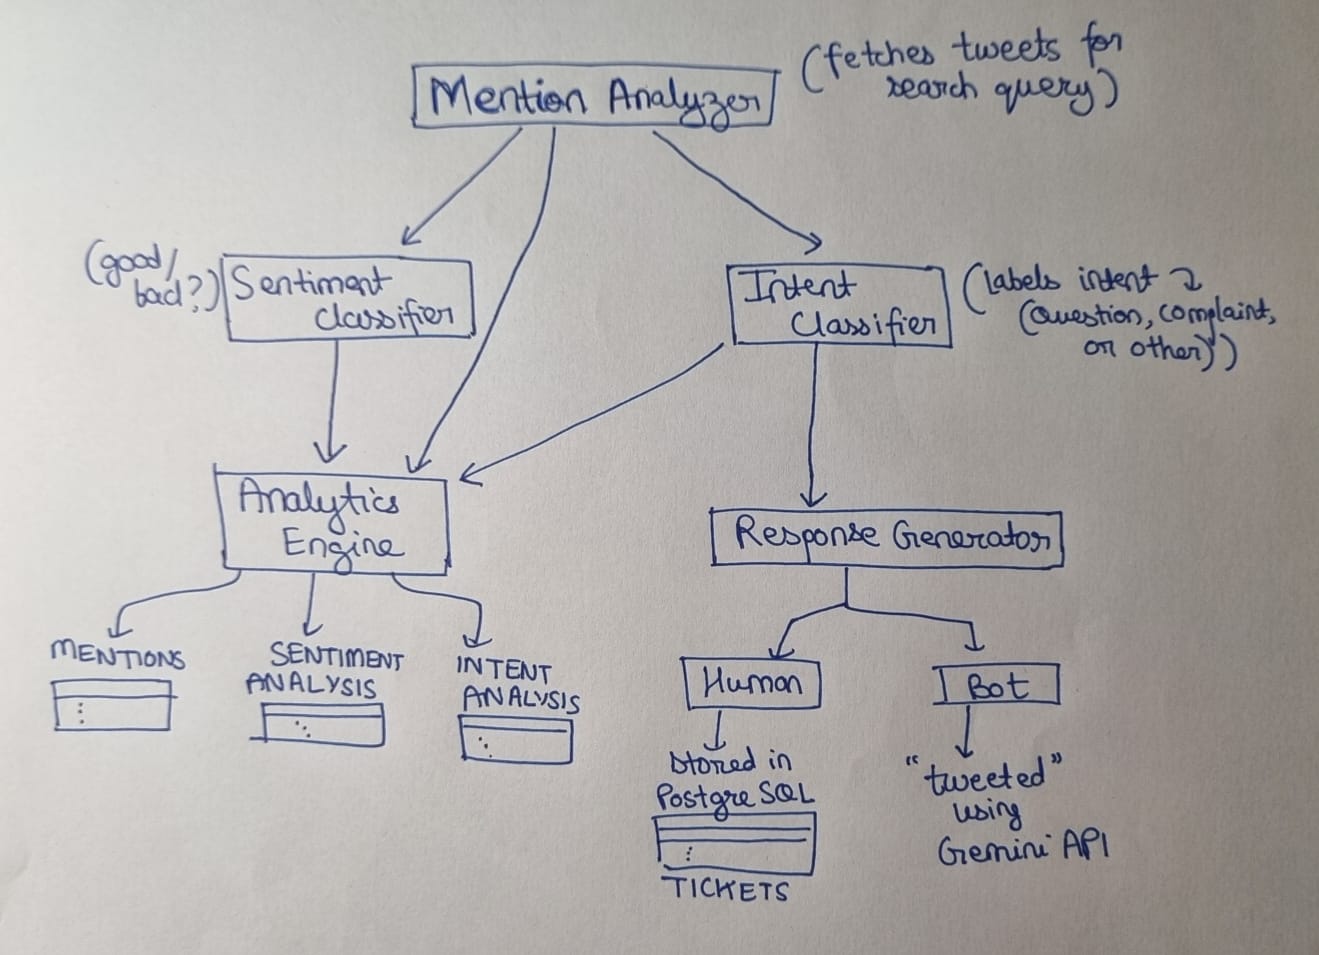 Mention Analyzer
(fetches tweets for
search query)
(good/
bad?)
Sentiment
Classifier
Intent
Classifier
(Labels intent ↴
(Question, complaint,
or other))
Analytics
Engine
Response Generator
MENTIONS
SENTIMENT
ANALYSIS
INTENT
ANALYSIS
Human
Bot
stored in
PostgreSQL
TICKETS
"tweeted"
using
Gemini API